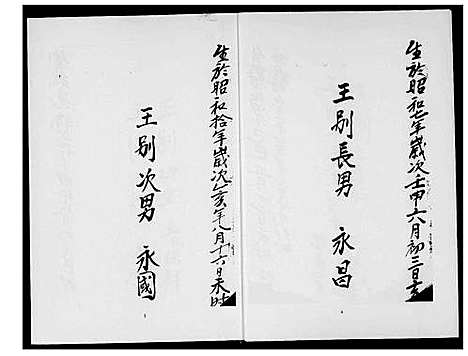 王別長男 永昌
生於昭和七年歲次壬申六月初三日亥
王別次男 永國
生於昭和拾年歲次乙亥年八月十六日未時